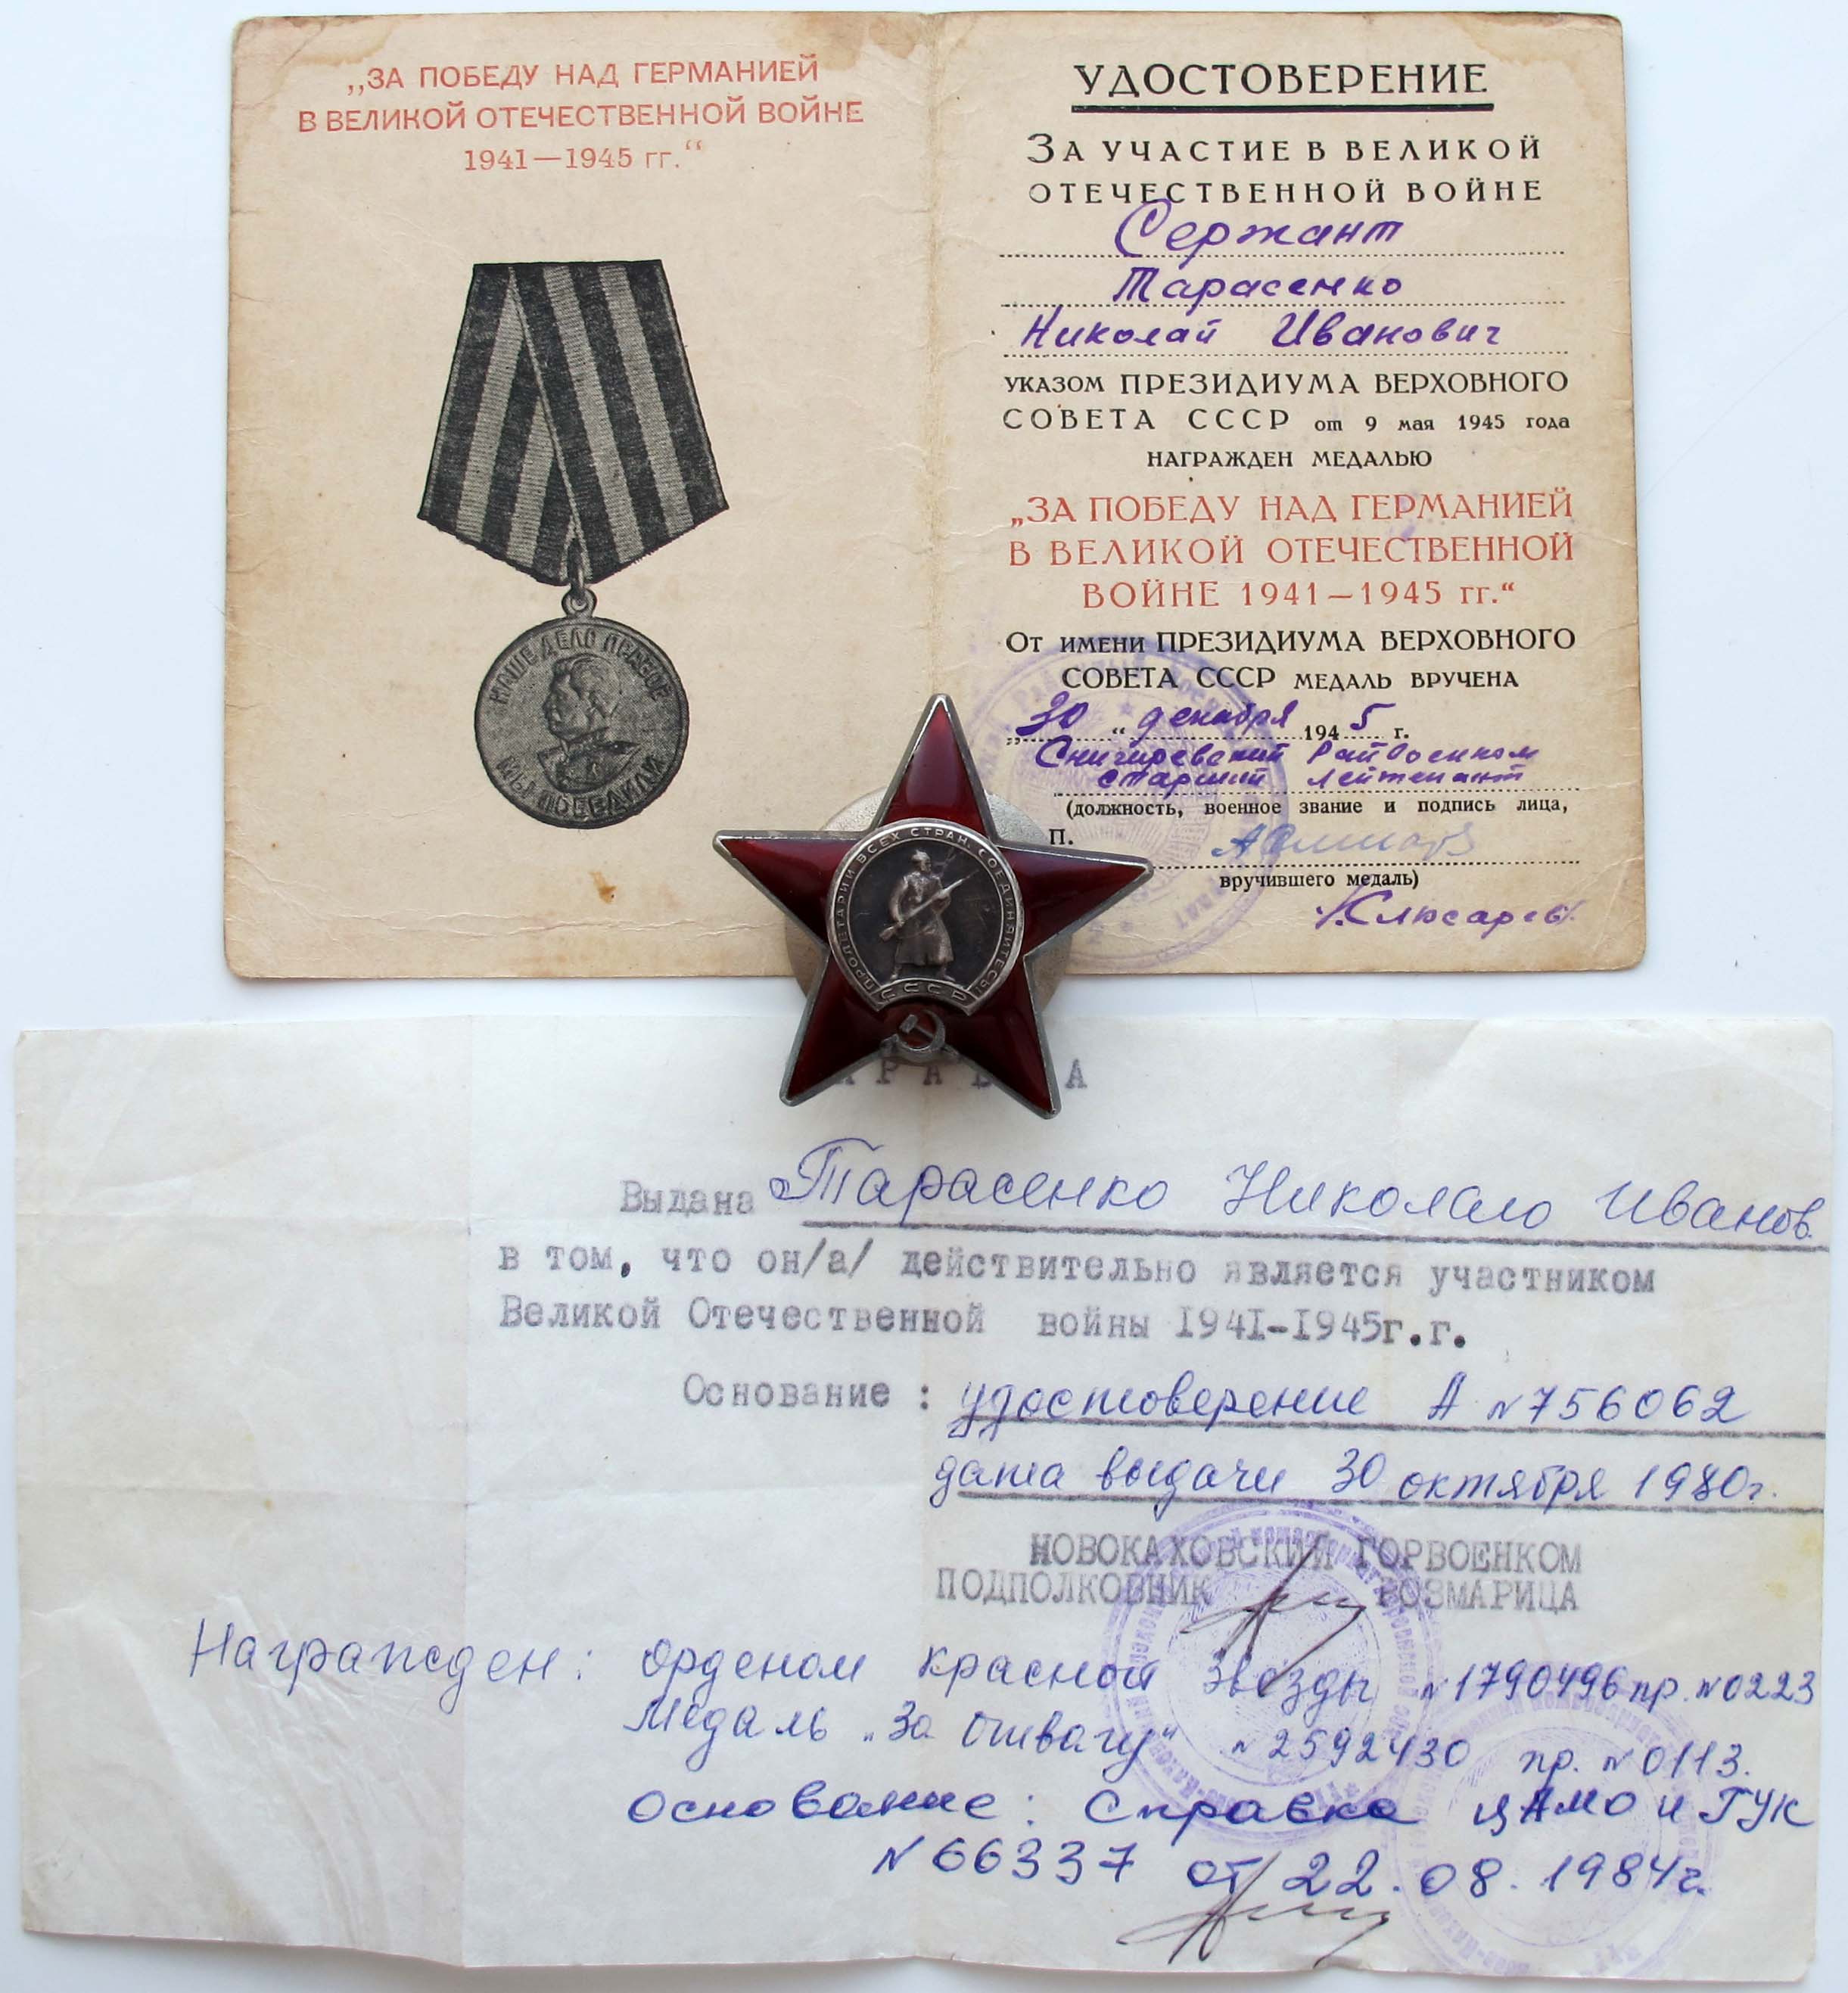 „ЗА ПОБЕДУ НАД ГЕРМАНИЕЙ
В ВЕЛИКОЙ ОТЕЧЕСТВЕННОЙ ВОЙНЕ
1941—1945 гг.“
НАШЕ ДЕЛО ПРАВОЕ
МЫ ПОБЕДИЛИ
УДОСТОВЕРЕНИЕ
ЗА УЧАСТИЕ В ВЕЛИКОЙ
ОТЕЧЕСТВЕННОЙ ВОЙНЕ
Сержант
Тарасенко
Николай Иванович
УКАЗОМ ПРЕЗИДИУМА ВЕРХОВНОГО
СОВЕТА СССР от 9 мая 1945 года
НАГРАЖДЕН МЕДАЛЬЮ
„ЗА ПОБЕДУ НАД ГЕРМАНИЕЙ
В ВЕЛИКОЙ ОТЕЧЕСТВЕННОЙ
ВОЙНЕ 1941—1945 гг.“
ОТ ИМЕНИ ПРЕЗИДИУМА ВЕРХОВНОГО
СОВЕТА СССР МЕДАЛЬ ВРУЧЕНА
„30“ декабря 1945 г.
Снигиревский Райвоенком
старший лейтенант
(должность, военное звание и подпись лица,
П.
вручившего медаль)
ПРОЛЕТАРИИ ВСЕХ СТРАН, СОЕДИНЯЙТЕСЬ!
СССР
Выдана Тарасенко Николаю Иванов.
в том, что он/а/ действительно является участником
Великой Отечественной войны 1941-1945г.г.
Основание : удостоверение А №756062
дата выдачи 30 октября 1980г.
НОВОКАХОВСКИЙ ГОРВОЕНКОМ
ПОДПОЛКОВНИК РОЗМАРИЦА
Награжден: орденом красной Звезды №1790496 пр. №0223
Медаль „За Отвагу“ №2592430 пр. №0113.
Основание: Справка ЦАМО и ГУК
№66337 от 22.08.1984г.